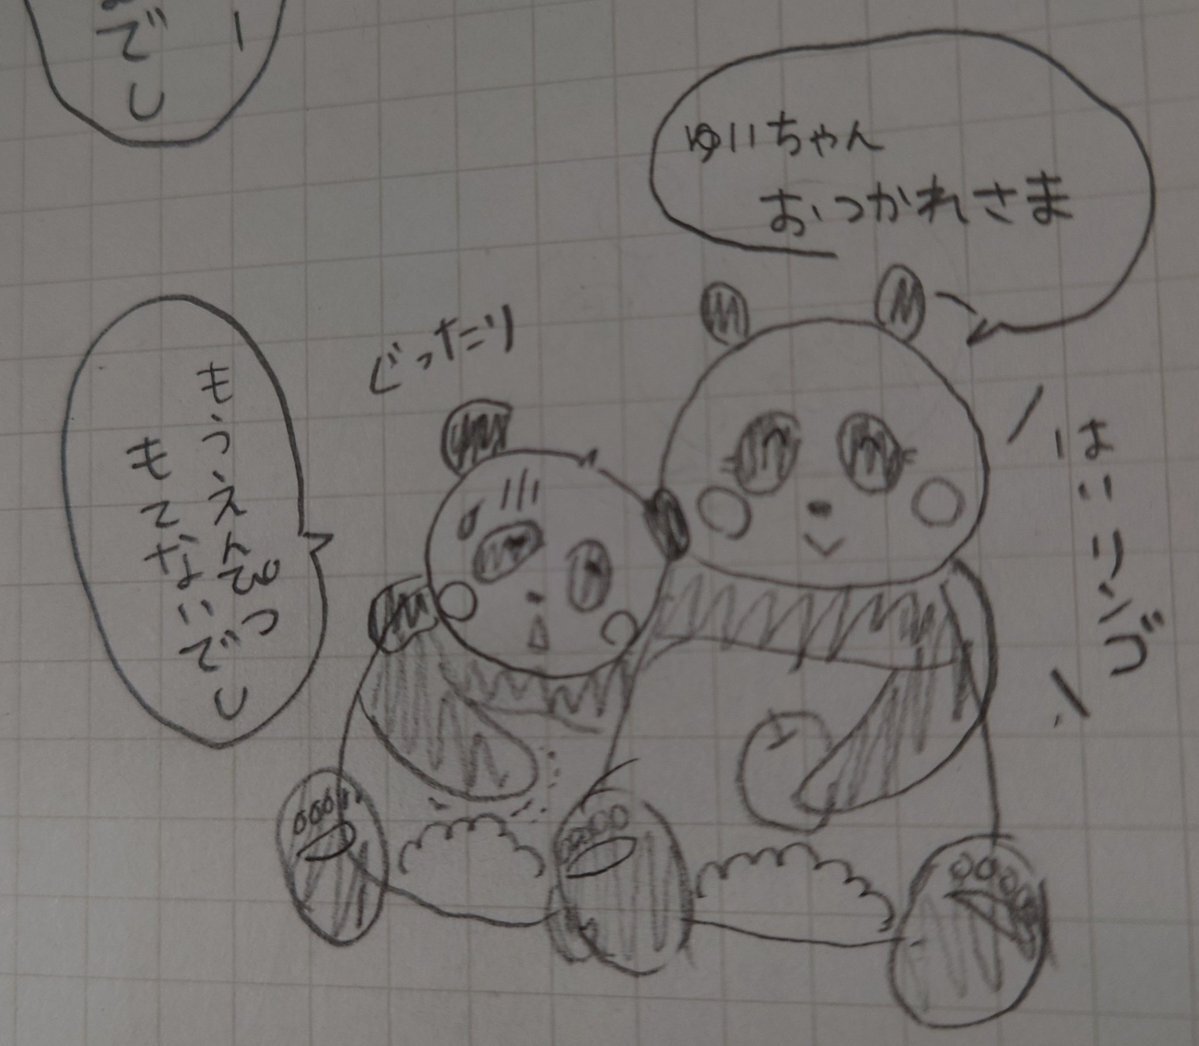 ー
でし
ゆいちゃん
おつかれさま
はいリンゴ
ぐったり
もうえんぴつ
もてないでし